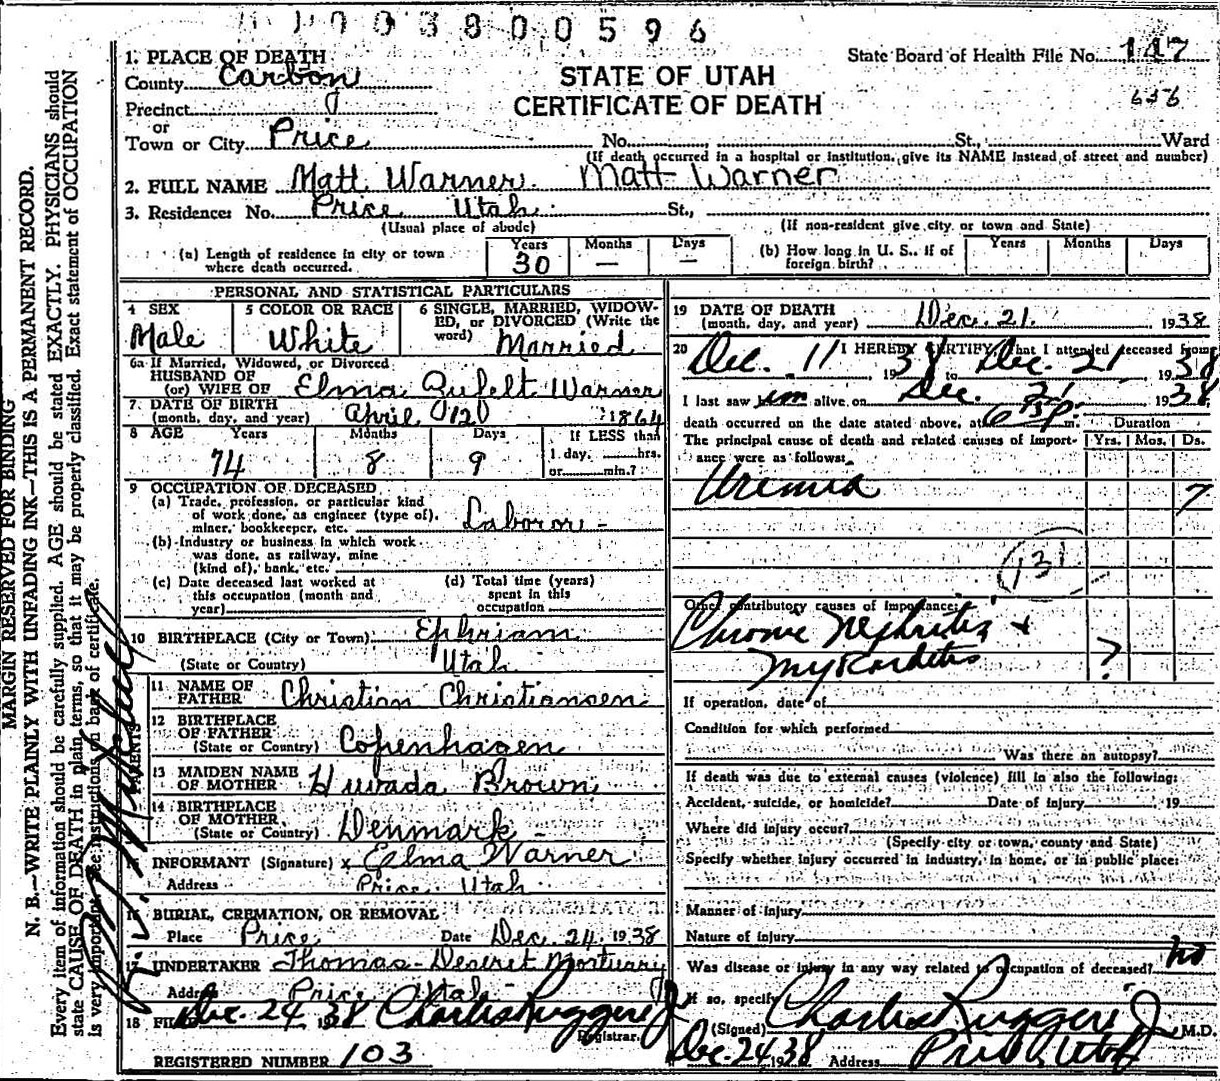 003800596
State Board of Health File No. 147
656
STATE OF UTAH
CERTIFICATE OF DEATH
1. PLACE OF DEATH
County Carbon
Precinct
or
Town or City Price No. St., Ward
(If death occurred in a hospital or institution, give its NAME instead of street and number)
2. FULL NAME Matt Warner. Matt Warner
3. Residence: No. Price Utah. St.,
(Usual place of abode) (If non-resident give city or town and State)
(a) Length of residence in city or town where death occurred. Years 30 Months — Days —
(b) How long in U. S., if of foreign birth? Years Months Days
PERSONAL AND STATISTICAL PARTICULARS
4 SEX Male
5 COLOR OR RACE White
6 SINGLE, MARRIED, WIDOWED, or DIVORCED (Write the word) Married
6a If Married, Widowed, or Divorced
HUSBAND OF
(or) WIFE OF Elma Warner
7. DATE OF BIRTH
(month, day, and year) April 12 1864
8 AGE Years 74 Months 8 Days 9 If LESS than
1 day, hrs.
or min.?
9 OCCUPATION OF DECEASED
(a) Trade, profession, or particular kind
of work done, as engineer (type of),
miner, bookkeeper, etc. Laborer -
(b) Industry or business in which work
was done, as railway, mine
(kind of), bank, etc.
(c) Date deceased last worked at
this occupation (month and
year)
(d) Total time (years)
spent in this
occupation
10 BIRTHPLACE (City or Town) Ephriam
(State or Country) Utah
PARENTS
11 NAME OF
FATHER Christian Christiansen
12 BIRTHPLACE
OF FATHER
(State or Country) Copenhagen
13 MAIDEN NAME
OF MOTHER Huvada Brown
14 BIRTHPLACE
OF MOTHER
(State or Country) Denmark -
INFORMANT (Signature) x Elma Warner
Address Price Utah
16 BURIAL, CREMATION, OR REMOVAL
Place Price Date Dec. 24. 1938
17 UNDERTAKER Thomas-Deseret Mortuary
Address Price Utah -
18 FILED Dec. 24 1938 Charles Ruggeri Jr
Registrar.
REGISTERED NUMBER 103
19 DATE OF DEATH
(month, day, and year) Dec. 21. 1938
20 I HEREBY CERTIFY, That I attended deceased from
Dec. 11 1938 to Dec. 21 1938
I last saw him alive on Dec. 21 1938
death occurred on the date stated above, at m. Duration
The principal cause of death and related causes of importance were as follows: Yrs. Mos. Ds.
Uremia 7
131
Other contributory causes of importance:
Chronic Nephritis +
Myocarditis ?
If operation, date of
Condition for which performed
Was there an autopsy?
If death was due to external causes (violence) fill in also the following:
Accident, suicide, or homicide? Date of injury 19
Where did injury occur?
(Specify city or town, county and State)
Specify whether injury occurred in industry, in home, or in public place:
Manner of injury
Nature of injury
Was disease or injury in any way related to occupation of deceased? no
If so, specify
(Signed) Charles Ruggeri Jr M.D.
Dec. 24 1938 Address Price, Utah
MARGIN RESERVED FOR BINDING
N. B.—WRITE PLAINLY WITH UNFADING INK—THIS IS A PERMANENT RECORD.
Every item of information should be carefully supplied. AGE should be stated EXACTLY. PHYSICIANS should
state CAUSE OF DEATH in plain terms, so that it may be properly classified. Exact statement of OCCUPATION
is very important. See instructions on back of certificate.